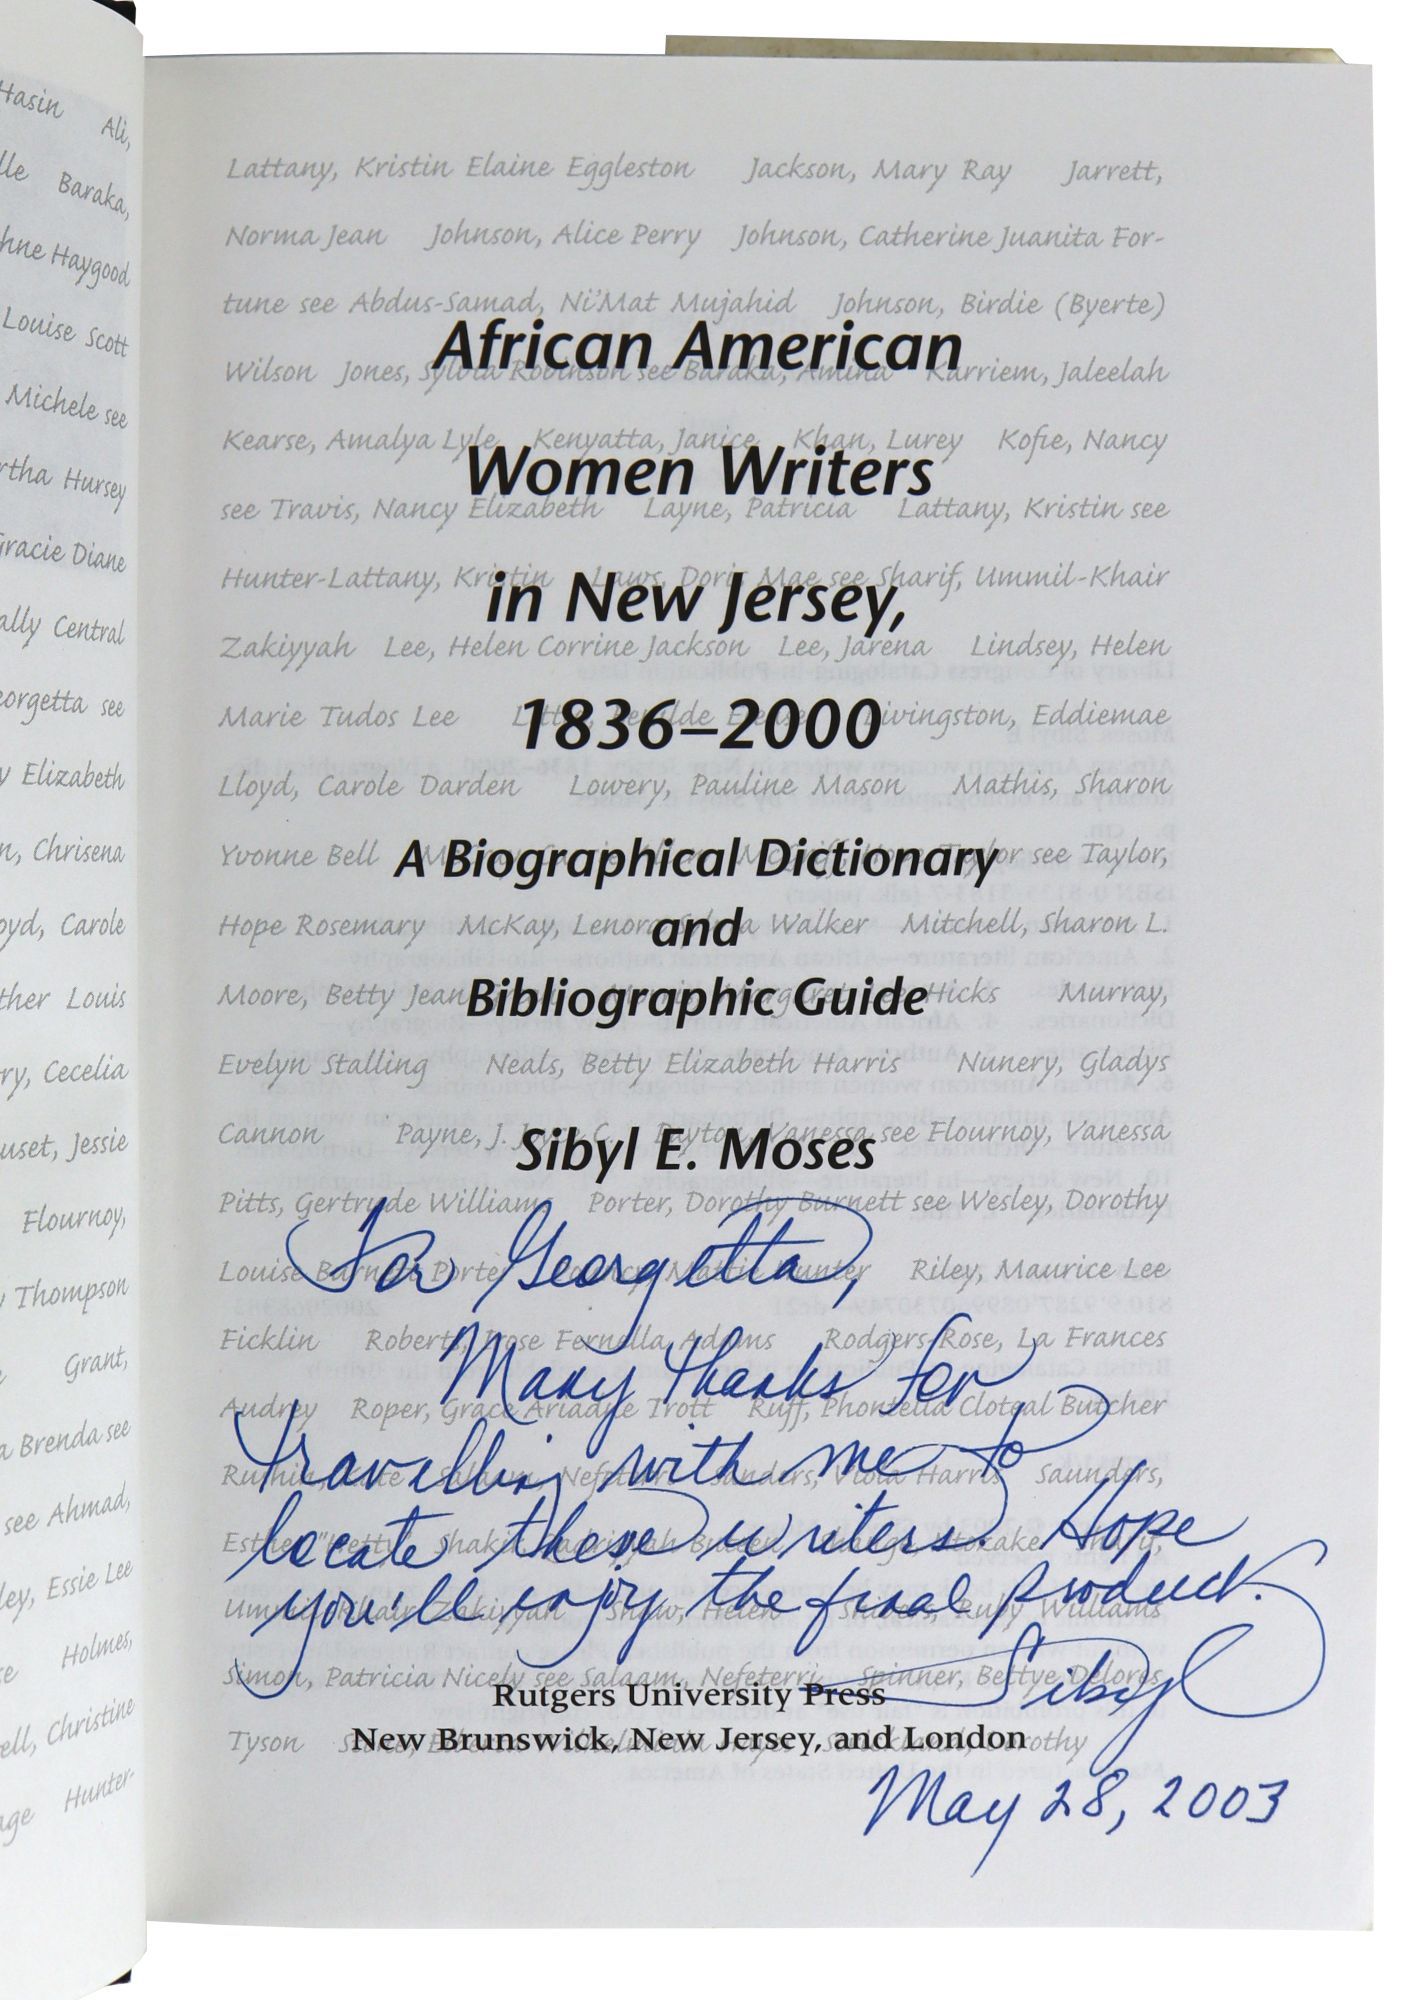 Hasin Ali,
Baraka,
Haygood
Louise Scott
Michele see
Hursey
Gracie Diane
Central
see
Elizabeth
Chrisena
Carole
Louis
Cecelia
Jessie
Flournoy,
Thompson
Grant,
Brenda see
see Ahmad,
Essie Lee
Holmes,
Christine
Hunter-
Lattany, Kristin Elaine Eggleston Jackson, Mary Ray Jarrett,
Norma Jean Johnson, Alice Perry Johnson, Catherine Juanita For-
tune see Abdus-Samad, Ni'Mat Mujahid Johnson, Birdie (Byerte)
African American
Wilson Jones, Sylvia Robinson see Baraka, Amina Karriem, Jaleelah
Kearse, Amalya Lyle Kenyatta, Janice Khan, Lurey Kofie, Nancy
Women Writers
see Travis, Nancy Elizabeth Layne, Patricia Lattany, Kristin see
Hunter-Lattany, Kristin Laws, Doris Mae see Sharif, Ummil-Khair
in New Jersey,
Zakiyyah Lee, Helen Corrine Jackson Lee, Jarena Lindsey, Helen
Marie Tudos Lee Livingston, Eddiemae
1836–2000
Lloyd, Carole Darden Lowery, Pauline Mason Mathis, Sharon
Yvonne Bell see Taylor,
A Biographical Dictionary
Hope Rosemary McKay, Lenora Walker Mitchell, Sharon L.
and
Moore, Betty Jean Hicks Murray,
Bibliographic Guide
Evelyn Stalling Neals, Betty Elizabeth Harris Nunery, Gladys
Cannon Payne, J. Joyce C. Payton, Vanessa see Flournoy, Vanessa
Sibyl E. Moses
Pitts, Gertrude Williams Porter, Dorothy Burnett see Wesley, Dorothy
For Georgetta,
Louise Burnett Porter Hunter Riley, Maurice Lee
Ficklin Roberts, Rose Fernella Adams Rodgers-Rose, La Frances
Many thanks for
Audrey Roper, Grace Ariadne Trott Ruff, Phontella Cloteal Butcher
travelling with me to
Salaam, Nefeterri Sanders, Viola Harris Saunders,
locate these writers. Hope
you'll enjoy the final product.
Simon, Patricia Nicely see Salaam, Nefeterri Spinner, Bettye Delores
Sibyl
Rutgers University Press
Tyson Dorothy
New Brunswick, New Jersey, and London
May 28, 2003